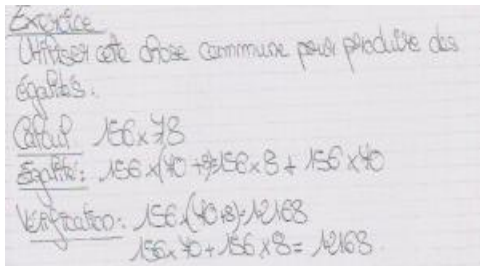 Exercice
Utiliser cette chose commune pour produire des
égalités.
Calcul 156 x 78
Egalité: 156 x (70 + 8) = 156 x 8 + 156 x 70
Vérification: 156 x (70+8) = 12168
156 x 70 + 156 x 8 = 12168